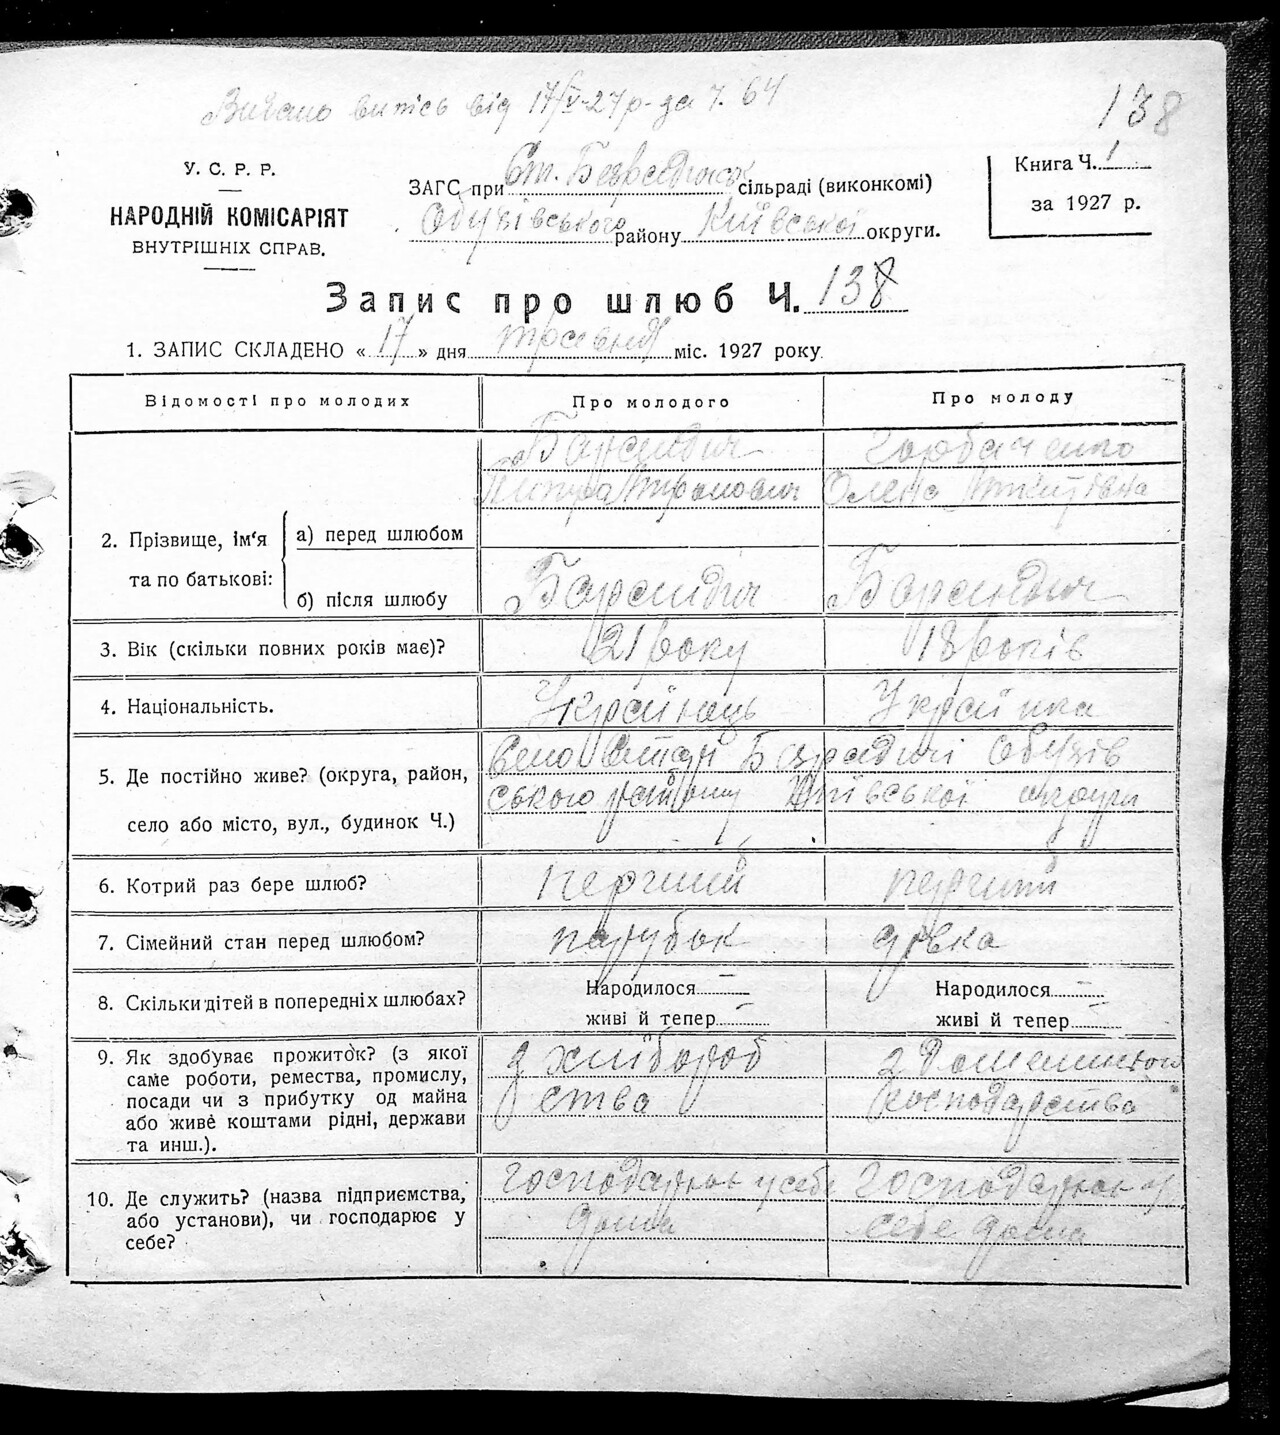 Видано випісь від 17/V-27р. за Ч. 64
138
У. С. Р. Р.
НАРОДНІЙ КОМІСАРІЯТ
ВНУТРІШНІХ СПРАВ.
ЗАГС при Ст. Безрадицьк сільраді (виконкомі)
Обухівського району Київської округи.
Книга Ч. 1
за 1927 р.
Запис про шлюб Ч. 138
1. ЗАПИС СКЛАДЕНО « 17 » дня травня міс. 1927 року
Відомості про молодих
Про молодого
Про молоду
2. Прізвище, ім'я та по батькові:
а) перед шлюбом
Горбаченко
Олена
б) після шлюбу
3. Вік (скільки повних років має)?
21 року
18 років
4. Національність.
Українець
Українка
5. Де постійно живе? (округа, район,
село або місто, вул., будинок Ч.)
Село Старі Безрадичі Обухів
ського району Київської округи
6. Котрий раз бере шлюб?
перший
перший
7. Сімейний стан перед шлюбом?
парубок
дівка
8. Скільки дітей в попередніх шлюбах?
Народилося —
живі й тепер —
Народилося —
живі й тепер —
9. Як здобуває прожиток? (з якої
саме роботи, ремества, промислу,
посади чи з прибутку од майна
або живе коштами рідні, держави
та инш.).
з хлібороб
ства
з Домашнього
господарства
10. Де служить? (назва підприємства,
або установи), чи господарює у
себе?
господарює у себе
дома
господарює у
себе дома